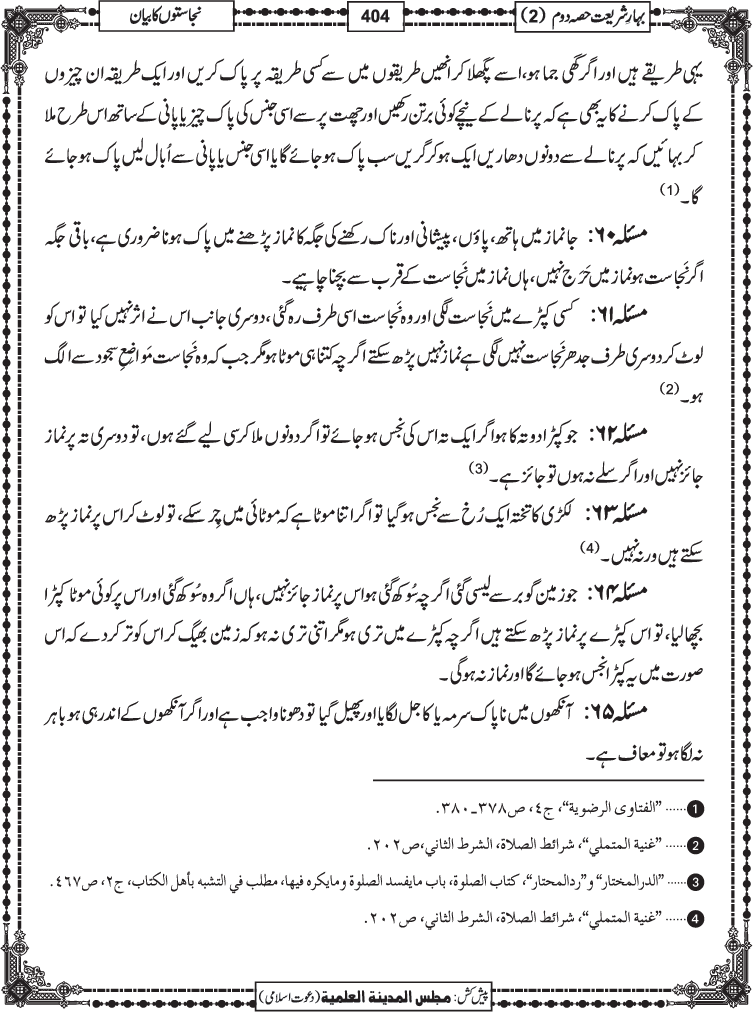 بہارِ شریعت حصہ دوم (2)
404
نجاستوں کا بیان
یہی طریقے ہیں اور اگر گھی جما ہو، اسے پگھلا کر انھیں طریقوں میں سے کسی طریقہ پر پاک کریں اور ایک طریقہ ان چیزوں
کے پاک کرنے کا یہ بھی ہے کہ پرنالے کے نیچے کوئی برتن رکھیں اور چھت پر سے اسی جنس کی پاک چیز یا پانی کے ساتھ اس طرح ملا
کر بہائیں کہ پرنالے سے دونوں دھاریں ایک ہو کر گریں سب پاک ہو جائے گا یا اسی جنس یا پانی سے اُبال لیں پاک ہو جائے
گا۔ (1)
مسئلہ ۶۰: جانماز میں ہاتھ، پاؤں، پیشانی اور ناک رکھنے کی جگہ کا نماز پڑھنے میں پاک ہونا ضروری ہے، باقی جگہ
اگر نَجاست ہو نماز میں حَرَج نہیں، ہاں نماز میں نَجاست کے قرب سے بچنا چاہیے۔
مسئلہ ۶۱: کسی کپڑے میں نَجاست لگی اور وہ نَجاست اسی طرف رہ گئی، دوسری جانب اس نے اثر نہیں کیا تو اس کو
لوٹ کر دوسری طرف جدھر نَجاست نہیں لگی ہے نماز نہیں پڑھ سکتے اگرچہ کتنا ہی موٹا ہو مگر جب کہ وہ نَجاست مَواضعِ سجود سے الگ
ہو۔ (2)
مسئلہ ۶۲: جو کپڑا دو تہ کا ہو اگر ایک تہ اس کی نجس ہو جائے تو اگر دونوں ملا کر سی لیے گئے ہوں، تو دوسری تہ پر نماز
جائز نہیں اور اگر سلے نہ ہوں تو جائز ہے۔ (3)
مسئلہ ۶۳: لکڑی کا تختہ ایک رُخ سے نجس ہو گیا تو اگر اتنا موٹا ہے کہ موٹائی میں چِر سکے، تو لوٹ کر اس پر نماز پڑھ
سکتے ہیں ورنہ نہیں۔ (4)
مسئلہ ۶۴: جو زمین گوبر سے لیسی گئی اگرچہ سُوکھ گئی ہو اس پر نماز جائز نہیں، ہاں اگر وہ سُوکھ گئی اور اس پر کوئی موٹا کپڑا
بچھا لیا، تو اس کپڑے پر نماز پڑھ سکتے ہیں اگرچہ کپڑے میں تری ہو مگر اتنی تری نہ ہو کہ زمین بھیگ کر اس کو تر کر دے کہ اس
صورت میں یہ کپڑا نجس ہو جائے گا اور نماز نہ ہو گی۔
مسئلہ ۶۵: آنکھوں میں ناپاک سرمہ یا کاجل لگایا اور پھیل گیا تو دھونا واجب ہے اور اگر آنکھوں کے اندر ہی ہو باہر
نہ لگا ہو تو معاف ہے۔
1 ...... "الفتاوی الرضویة"، ج٤، ص٣٧٨ـ٣٨٠.
2 ...... "غنية المتملي"، شرائط الصلاة، الشرط الثاني، ص٢٠٢.
3 ...... "الدرالمختار" و"ردالمحتار"، کتاب الصلوة، باب مايفسد الصلوة ومايكره فيها، مطلب في التشبه بأهل الكتاب، ج٢، ص٤٦٧.
4 ...... "غنية المتملي"، شرائط الصلاة، الشرط الثاني، ص٢٠٢.
پیش کش: مجلس المدينة العلمية (دعوتِ اسلامی)